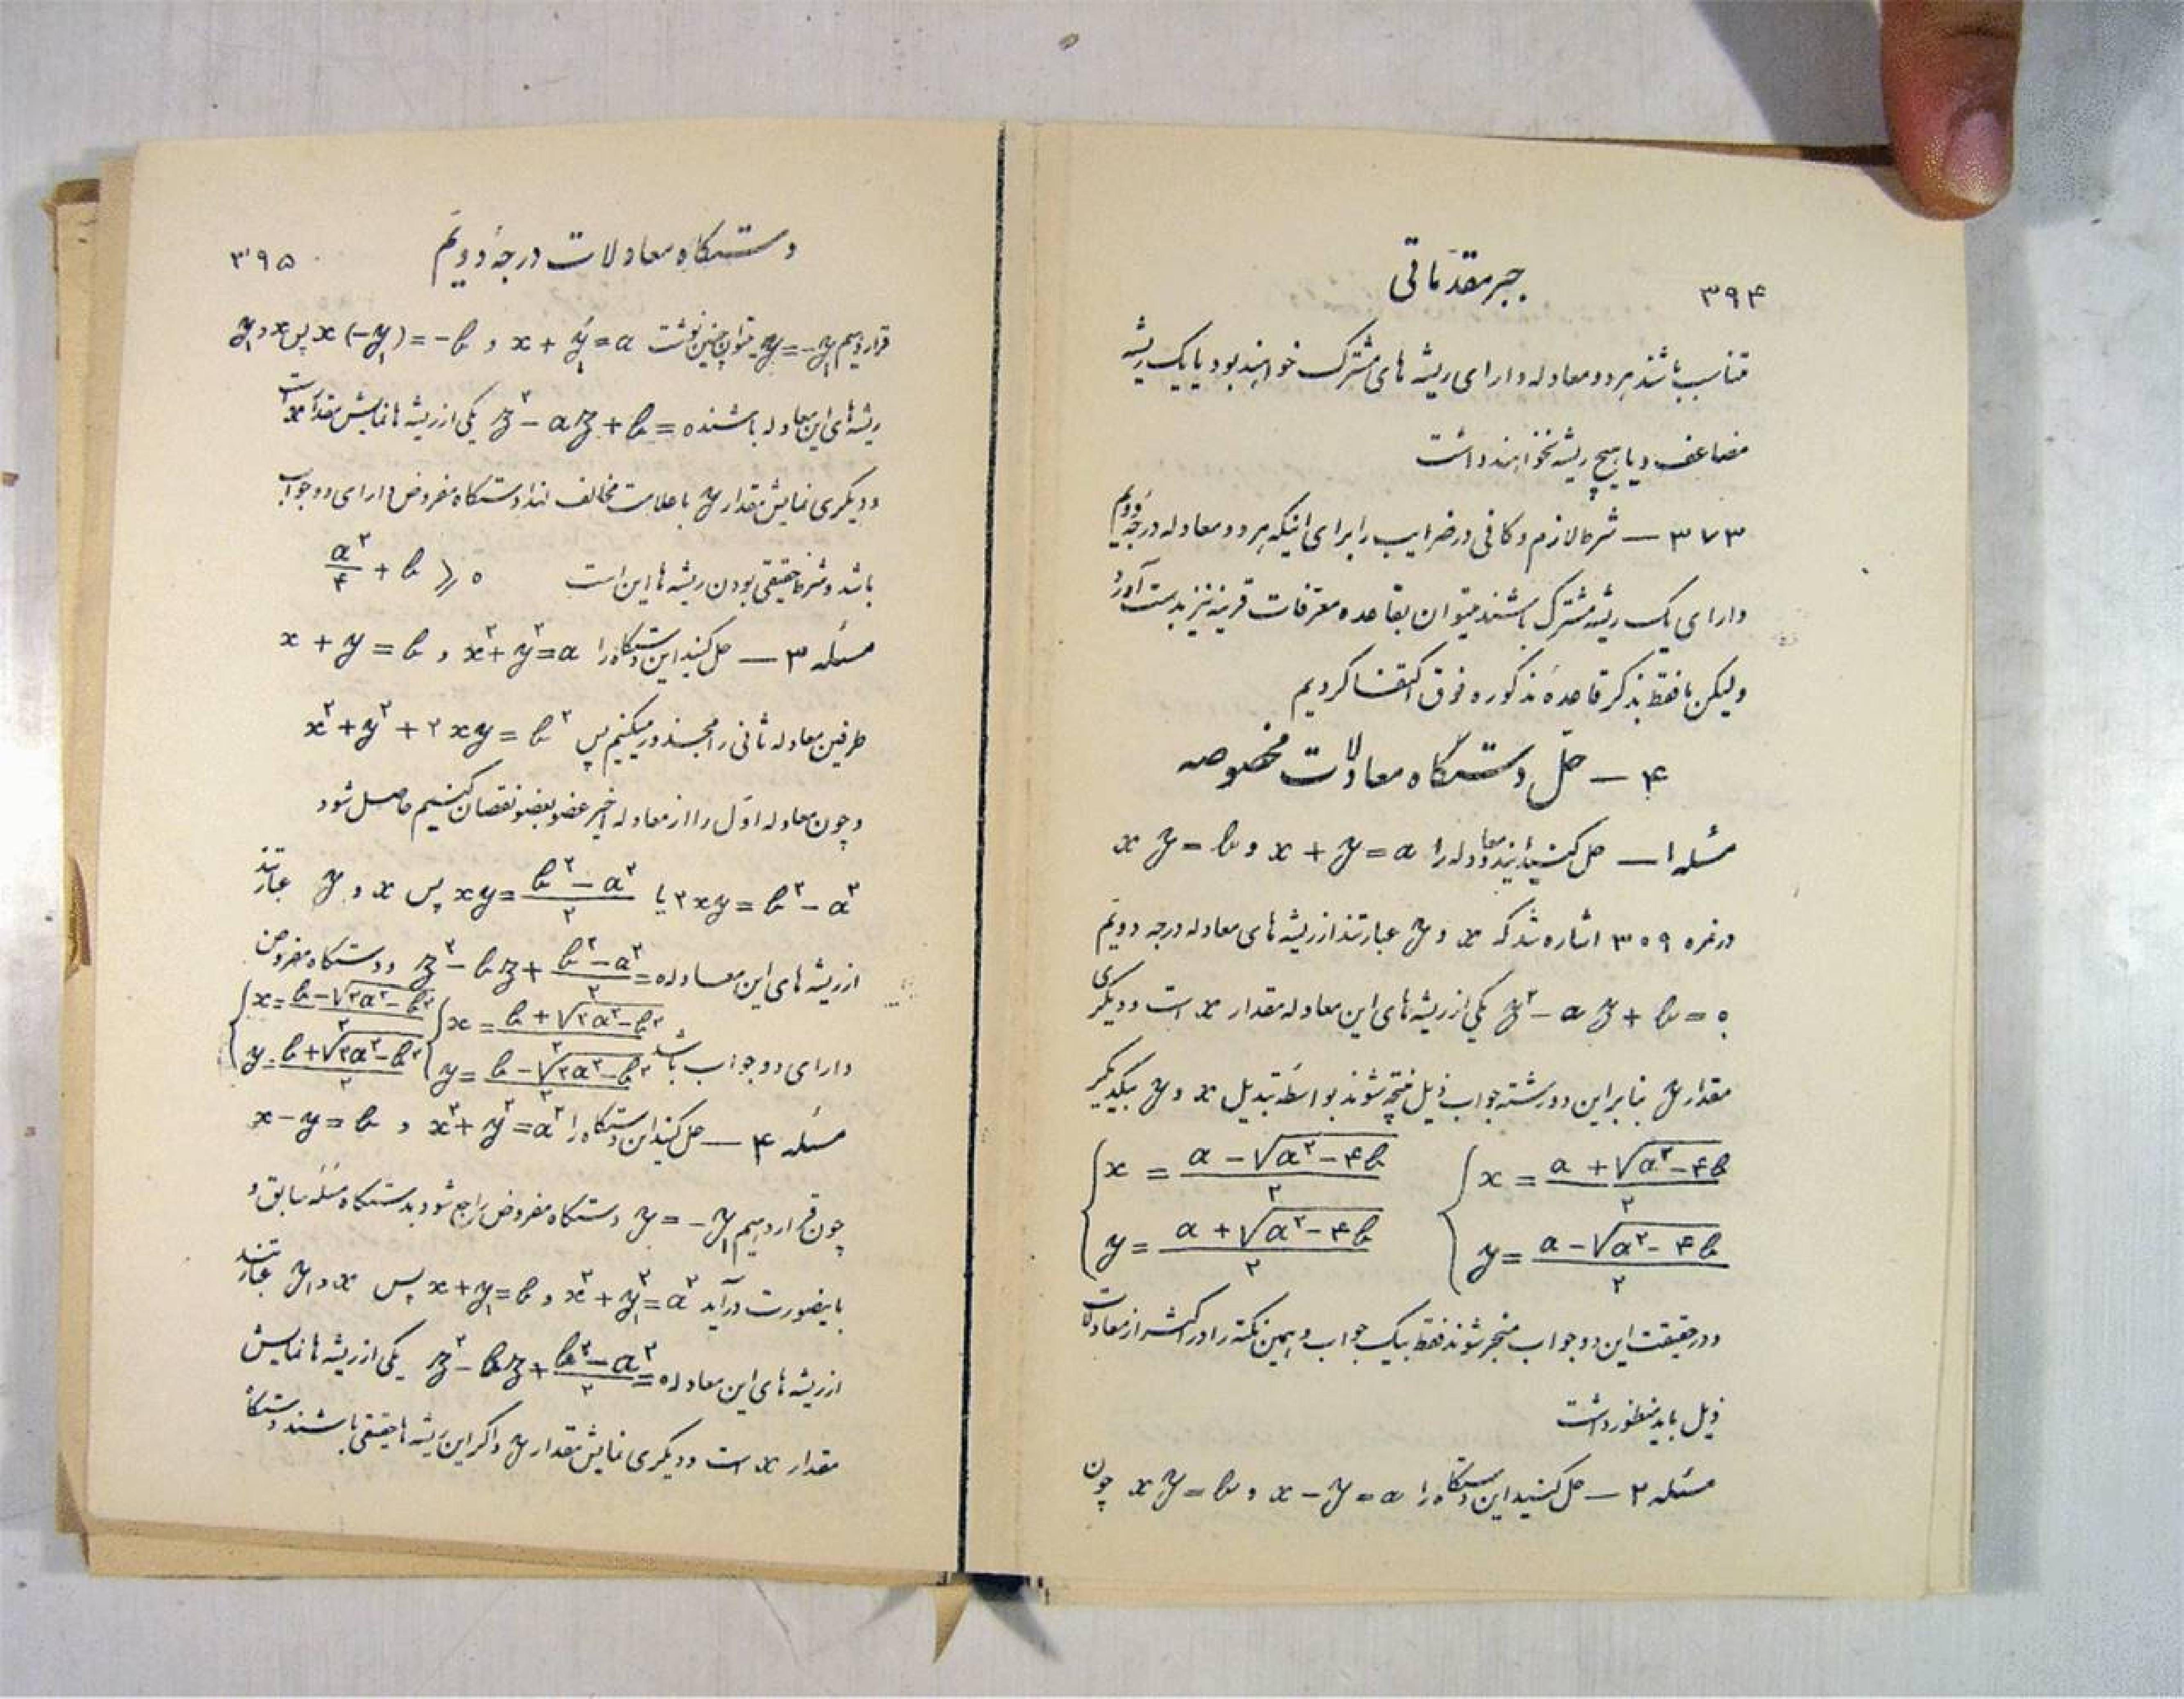 ۳۹۴ جبر مقدماتی
متناسب باشند هر دو معادله دارای ریشه های مشترک خواهند بود یا یک ریشه
مضاعف و یا هیچ ریشه نخواهند داشت
۳۷۳ — شرط لازم و کافی در ضرایب را برای اینکه هر دو معادله درجه دویم
دارای یک ریشه مشترک باشند میتوان بقاعده معرفات قرینه نیز بدست آورد
ولیکن ما فقط بذکر قاعدهٔ مذکوره فوق اکتفا کردیم
۴ — حلّ دستگاه معادلات مخصوصه
مسئله ۱ — حل کنید این دو معادله را x + y = a و x y = b
در نمره ۳۰۹ اشاره شد که x و y عبارتند از ریشه های معادله درجه دویم
z² - a z + b = ۰ یکی از ریشه های این معادله مقدار x است و دیگری
مقدار y بنابراین دو رشته جواب ذیل منتجه شوند بواسطه تبدیل x و y بیکدیگر
{ x = (a + √(a² - ۴b)) / ۲ { x = (a - √(a² - ۴b)) / ۲
y = (a - √(a² - ۴b)) / ۲ y = (a + √(a² - ۴b)) / ۲
و در حقیقت این دو جواب منجر شوند فقط بیک جواب و همین نکته را در اکثر از معادلات
ذیل باید منظور داشت
مسئله ۲ — حل کنید این دستگاه را x - y = a و x y = b چون
دستگاه معادلات درجهٔ دویم ۳۹۵
قرار دهیم y = -y₁ میتوان چنین نوشت x + y₁ = a و x(-y₁) = -b پس x و y₁
ریشه های این معادله باشند z² - az + b = ۰ یکی از ریشه ها نمایش مقدار x است
و دیگری نمایش مقدار y با علامت مخالف لهذا دستگاه مفروض دارای دو جواب
باشد و شرط حقیقی بودن ریشه ها این است a²/۴ + b ⩾ ۰
مسئله ۳ — حل کنید این دستگاه را x² + y² = a و x + y = b
طرفین معادله ثانی را مجذور میکنیم پس x² + y² + ۲xy = b²
و چون معادله اوّل را از معادله اخیر عضو بعضو نقصان کنیم حاصل شود
۲xy = b² - a² یا xy = (b² - a²)/۲ پس x و y عبارتند
از ریشه های این معادله z² - bz + (b² - a²)/۲ = ۰ و دستگاه مفروض
دارای دو جواب باشد { x = (b + √(۲a² - b²)) / ۲ { x = (b - √(۲a² - b²)) / ۲
y = (b - √(۲a² - b²)) / ۲ y = (b + √(۲a² - b²)) / ۲
مسئله ۴ — حل کنید این دستگاه را x² + y² = a² و x - y = b
چون قرار دهیم y = -y₁ دستگاه مفروض راجع شود بدستگاه مسئله سابق و
باینصورت در آید x² + y₁² = a² و x + y₁ = b پس x و y₁ عبارتند
از ریشه های این معادله z² - bz + (b² - a²)/۲ = ۰ یکی از ریشه ها نمایش
مقدار x است و دیگری نمایش مقدار y و اگر این ریشه ها حقیقی باشند دستگاه